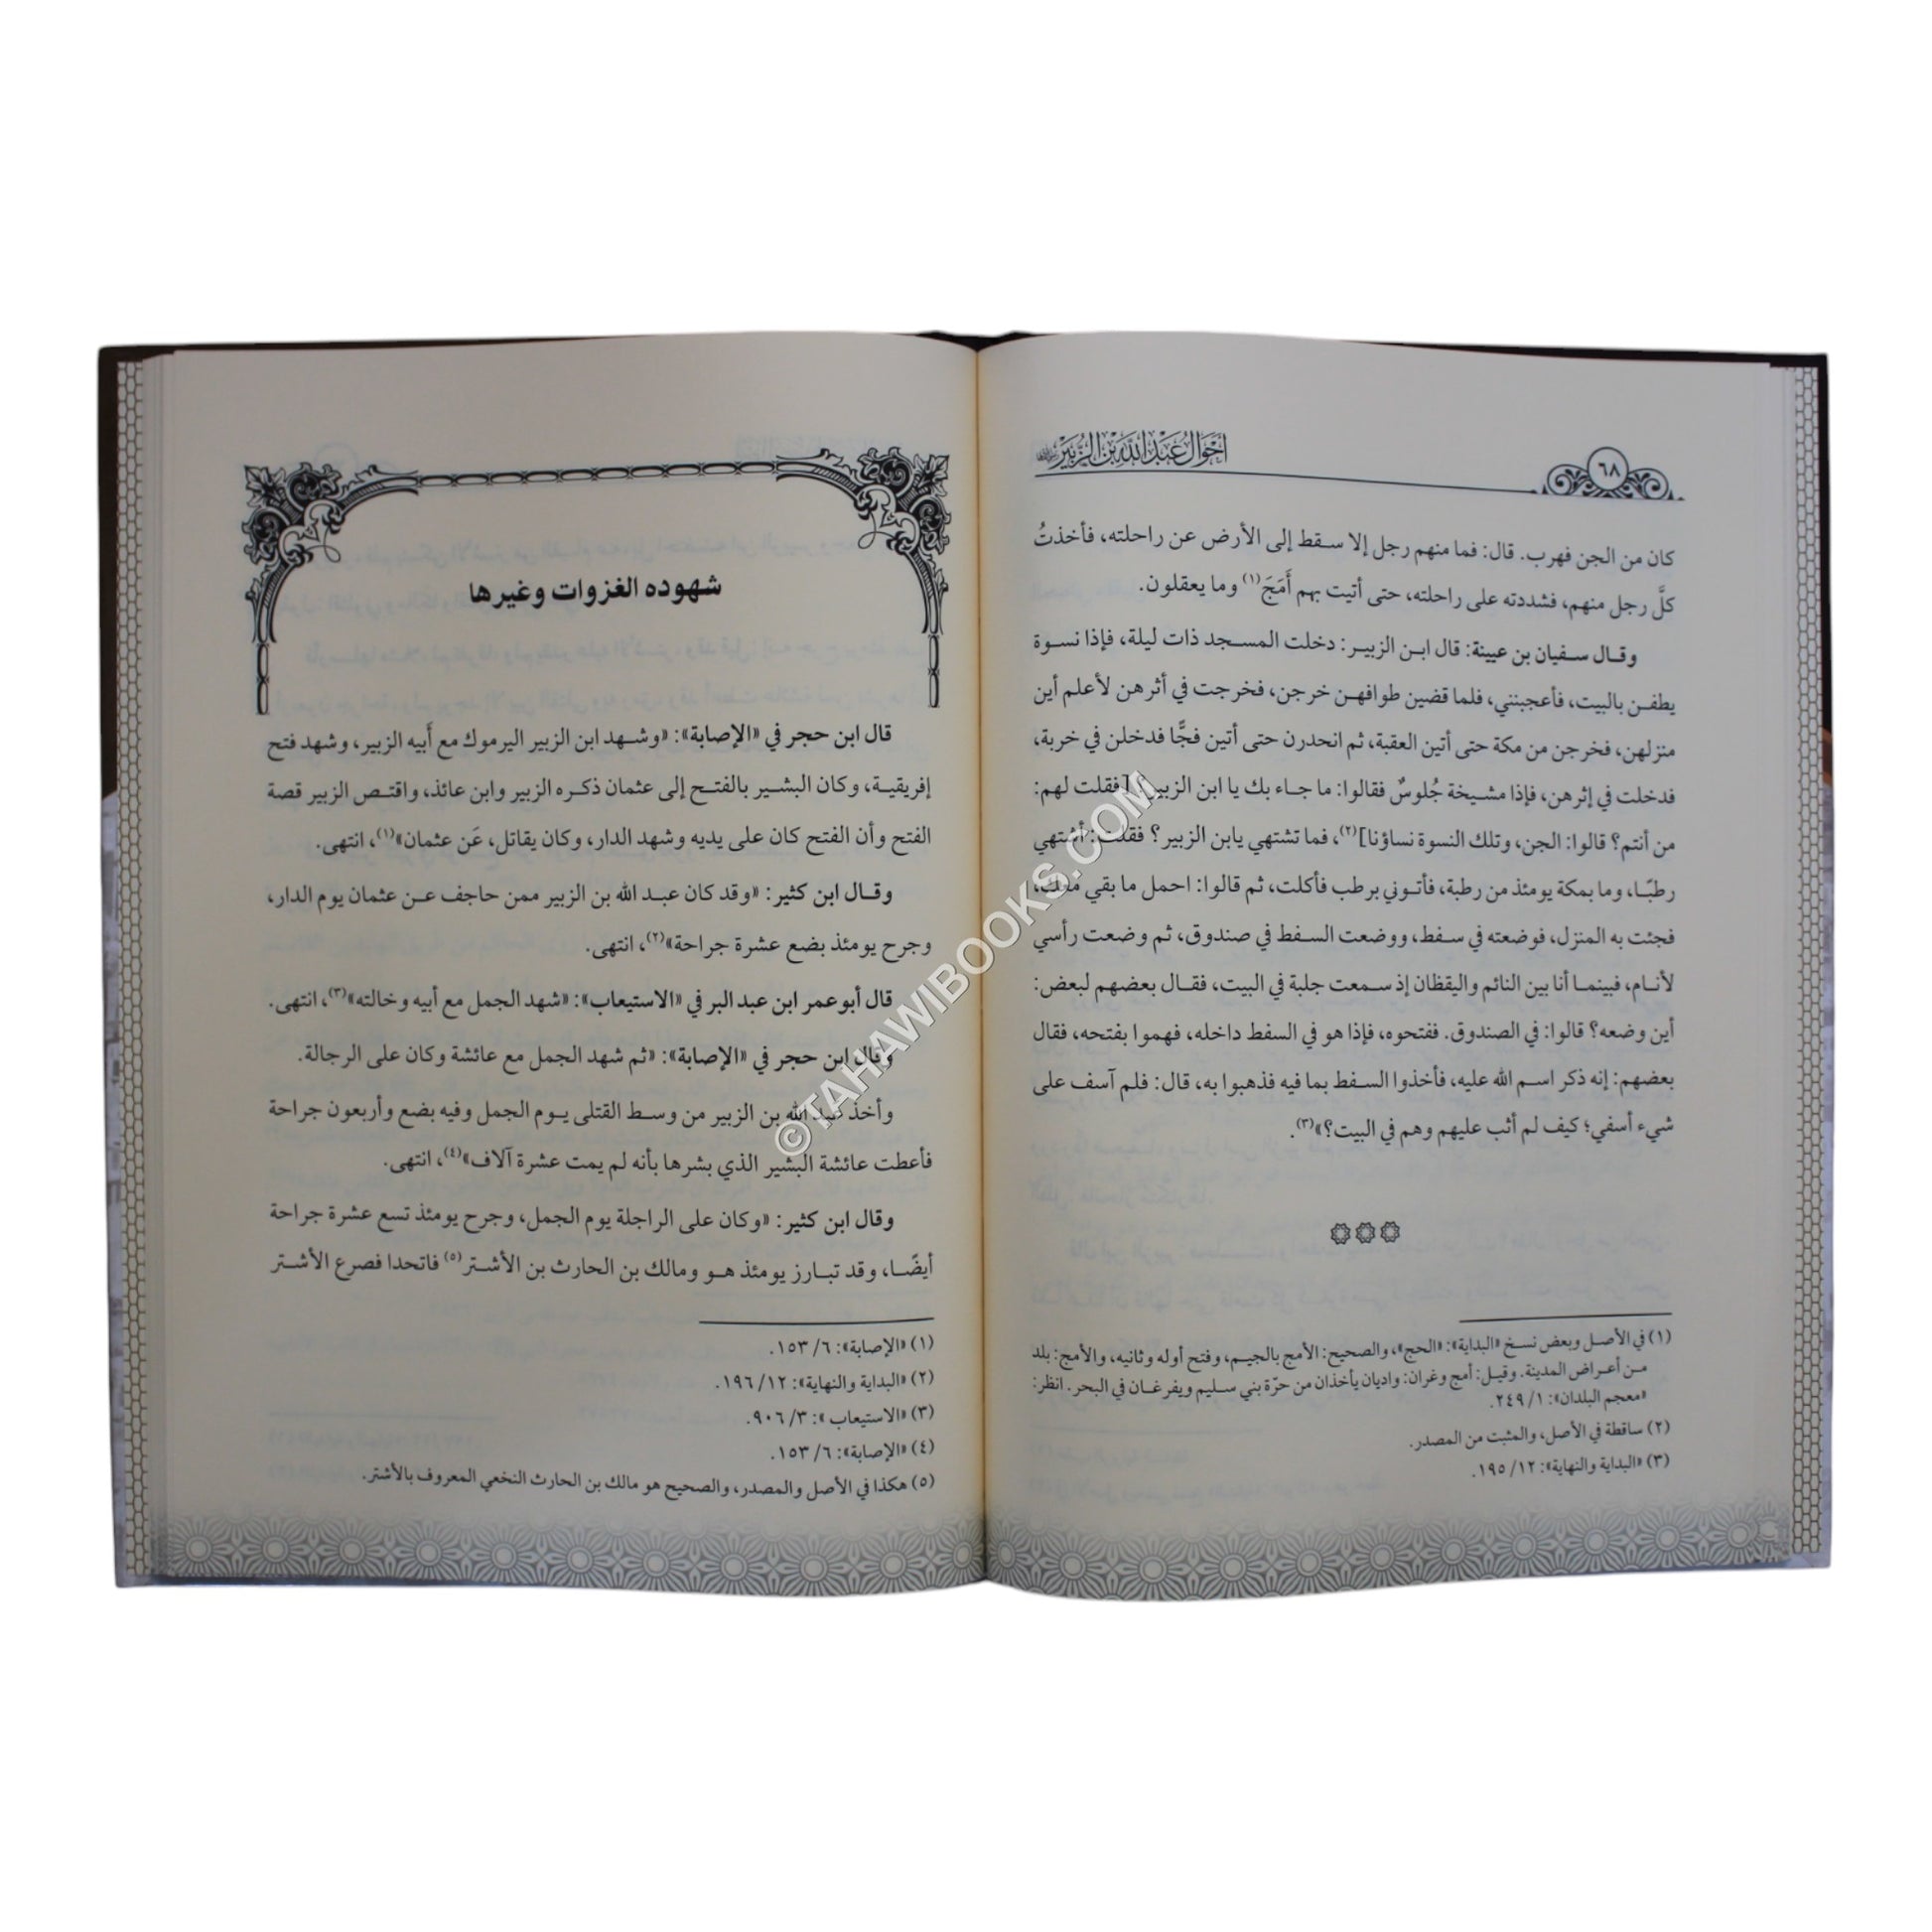 ٦٨
أحوال عبد الله بن الزبير
كان من الجن فهرب. قال: فما منهم رجل إلا سقط إلى الأرض عن راحلته، فأخذتُ
كلَّ رجل منهم، فشددته على راحلته، حتى أتيت بهم أَمَجَ(١) وما يعقلون.
وقال سفيان بن عيينة: قال ابن الزبير: دخلت المسجد ذات ليلة، فإذا نسوة
يطفن بالبيت، فأعجبنني، فلما قضين طوافهن خرجن، فخرجت في أثرهن لأعلم أين
منزلهن، فخرجن من مكة حتى أتين العقبة، ثم انحدرن حتى أتين فجًّا فدخلن في خربة،
فدخلت في إثرهن، فإذا مشيخة جُلوسٌ فقالوا: ما جاء بك يا ابن الزبير؟ [فقلت لهم:
من أنتم؟ قالوا: الجن، وتلك النسوة نساؤنا](٢)، فما تشتهي يابن الزبير؟ فقلت: أشتهي
رطبًا، وما بمكة يومئذ من رطبة، فأتوني برطب فأكلت، ثم قالوا: احمل ما بقي معك،
فجئت به المنزل، فوضعته في سفط، ووضعت السفط في صندوق، ثم وضعت رأسي
لأنام، فبينما أنا بين النائم واليقظان إذ سمعت جلبة في البيت، فقال بعضهم لبعض:
أين وضعه؟ قالوا: في الصندوق. ففتحوه، فإذا هو في السفط داخله، فهموا بفتحه، فقال
بعضهم: إنه ذكر اسم الله عليه، فأخذوا السفط بما فيه فذهبوا به، قال: فلم آسف على
شيء أسفي؛ كيف لم أثب عليهم وهم في البيت؟»(٣).
(١) في الأصل وبعض نسخ «البداية»: «الحج»، والصحيح: الأمج بالجيم، وفتح أوله وثانيه، والأمج: بلد
من أعراض المدينة. وقيل: أمج وغران: واديان يأخذان من حرّة بني سليم ويفرغان في البحر. انظر:
«معجم البلدان»: ١/ ٢٤٩.
(٢) ساقطة في الأصل، والمثبت من المصدر.
(٣) «البداية والنهاية»: ١٢/ ١٩٥.
شهوده الغزوات وغيرها
قال ابن حجر في «الإصابة»: «وشهد ابن الزبير اليرموك مع أَبيه الزبير، وشهد فتح
إفريقية، وكان البشير بالفتح إلى عثمان ذكره الزبير وابن عائذ، واقتص الزبير قصة
الفتح وأن الفتح كان على يديه وشهد الدار، وكان يقاتل، عَن عثمان»(١)، انتهى.
وقال ابن كثير: «وقد كان عبد الله بن الزبير ممن حاجف عن عثمان يوم الدار،
وجرح يومئذ بضع عشرة جراحة»(٢)، انتهى.
قال أبو عمر ابن عبد البر في «الاستيعاب»: «شهد الجمل مع أبيه وخالته»(٣)، انتهى.
وقال ابن حجر في «الإصابة»: «ثم شهد الجمل مع عائشة وكان على الرجالة.
وأخذ عبد الله بن الزبير من وسط القتلى يوم الجمل وفيه بضع وأربعون جراحة
فأعطت عائشة البشير الذي بشرها بأنه لم يمت عشرة آلاف»(٤)، انتهى.
وقال ابن كثير: «وكان على الراجلة يوم الجمل، وجرح يومئذ تسع عشرة جراحة
أيضًا، وقد تبارز يومئذ هو ومالك بن الحارث بن الأشتر(٥) فاتحدا فصرع الأشتر
(١) «الإصابة»: ٦/ ١٥٣.
(٢) «البداية والنهاية»: ١٢/ ١٩٦.
(٣) «الاستيعاب»: ٣/ ٩٠٦.
(٤) «الإصابة»: ٦/ ١٥٣.
(٥) هكذا في الأصل والمصدر، والصحيح هو مالك بن الحارث النخعي المعروف بالأشتر.
©TAHAWIBOOKS.COM